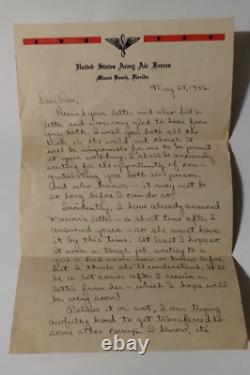 United States Army Air Forces
Miami Beach, Florida
May 28, 1942
Dear Rose,
Received your letter and also Sid's
letter and was very glad to hear from
you both. I wish you both all the
luck in the world and though it
will be impossible for me to be present
at your wedding, I shall be anxiously
waiting for the opportunity of con-
gratulating you both in person.
And who knows - it may not be
so long before I can do so!
Incidently, I have already answered
letter - a short time after I
answered yours - so she must have
it by this time. At least I hope so.
It was a tough job, writing to a
girl I had never seen or before,
but I think she'll understand. It'll be
a lot easier after I receive a
letter from her - which I hope will
be very soon!
Believe it or not, I am trying
awfully hard to get transferred to
some other camp. I know, it's